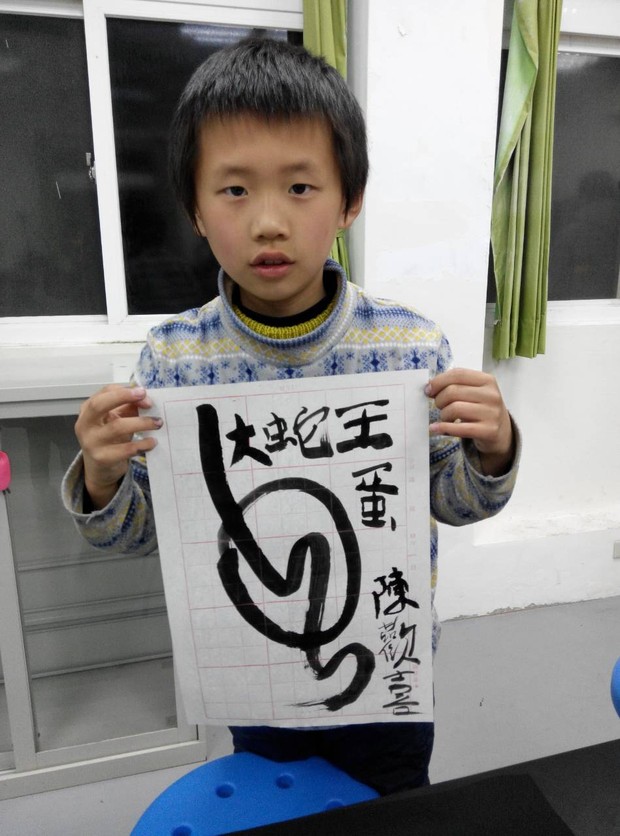 大蛇王
蛋
陳歡喜